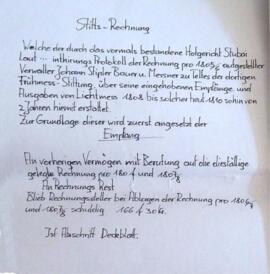 Stifts-Rechnung
Welche der durch das vormals bestandene Hofgericht Stubai
Laut ... inthirungs Protokoll der Rechnung pro 1805/6 aufgestellter
Verwalter Johann Stipler Bauer u. Messner zu Telfes der dortigen
Frühmess-Stiftung über seine eingehobenen Empfänge und
Ausgaben von Lichtmess 1808 bis solcher heut 1810 sohin von
2 Jahren hiemit erstattet.
Zur Grundlage dieser wird zuerst angesetzt der
Empfang
An vorherigen Vermögen mit Berufung auf die diesfällige
gelegte Rechnung pro 180 und 1807/8
An Rechnungs Rest
Blieb Rechnungssteller bei Ablegen der Rechnung pro 1806/7
und 1807/8 schuldig 166 f 30 kr.
Ist Abschrift Deckblatt.